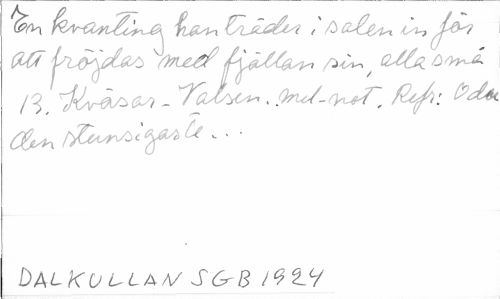 En kvanting han träder i salen in för
att fröjdas med fjällan sin, alla små
13. Kväsar-Valsen. mel-not. Refr: O du
den stunsigaste...
DALKULLAN SGB 1924